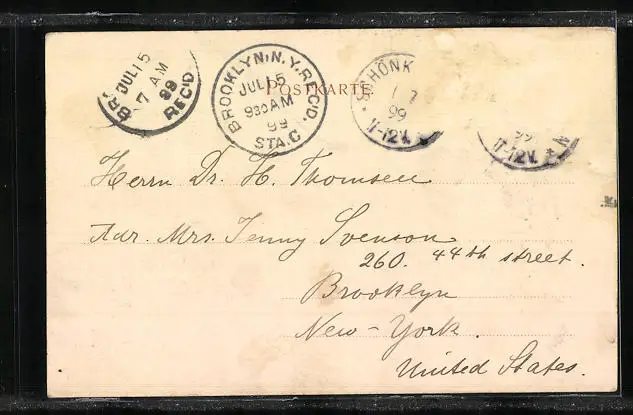 JUL 15
7 AM
99
REC'D
BROOKLYN, N.Y. REC'D.
JUL 15
930 AM
99
STA. C
POSTKARTE
SCHÖNK
1 7
99
11-12V.
99
11-12V.
N
Herrn Dr. H. Thomsen
Adr. Mrs. Jenny Svenson
260. 44th street.
Brooklyn
New-York.
United States.